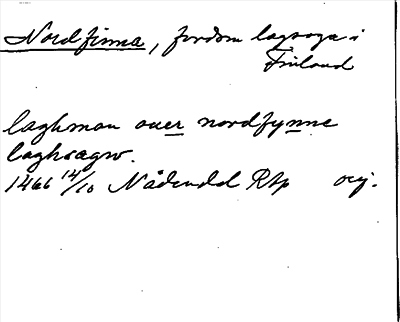 Nordfinna, fordom lagsaga i
Finland
laghman ouer nordfynne
laghsagw.
1466 14/10 Nådendal Rap orig.